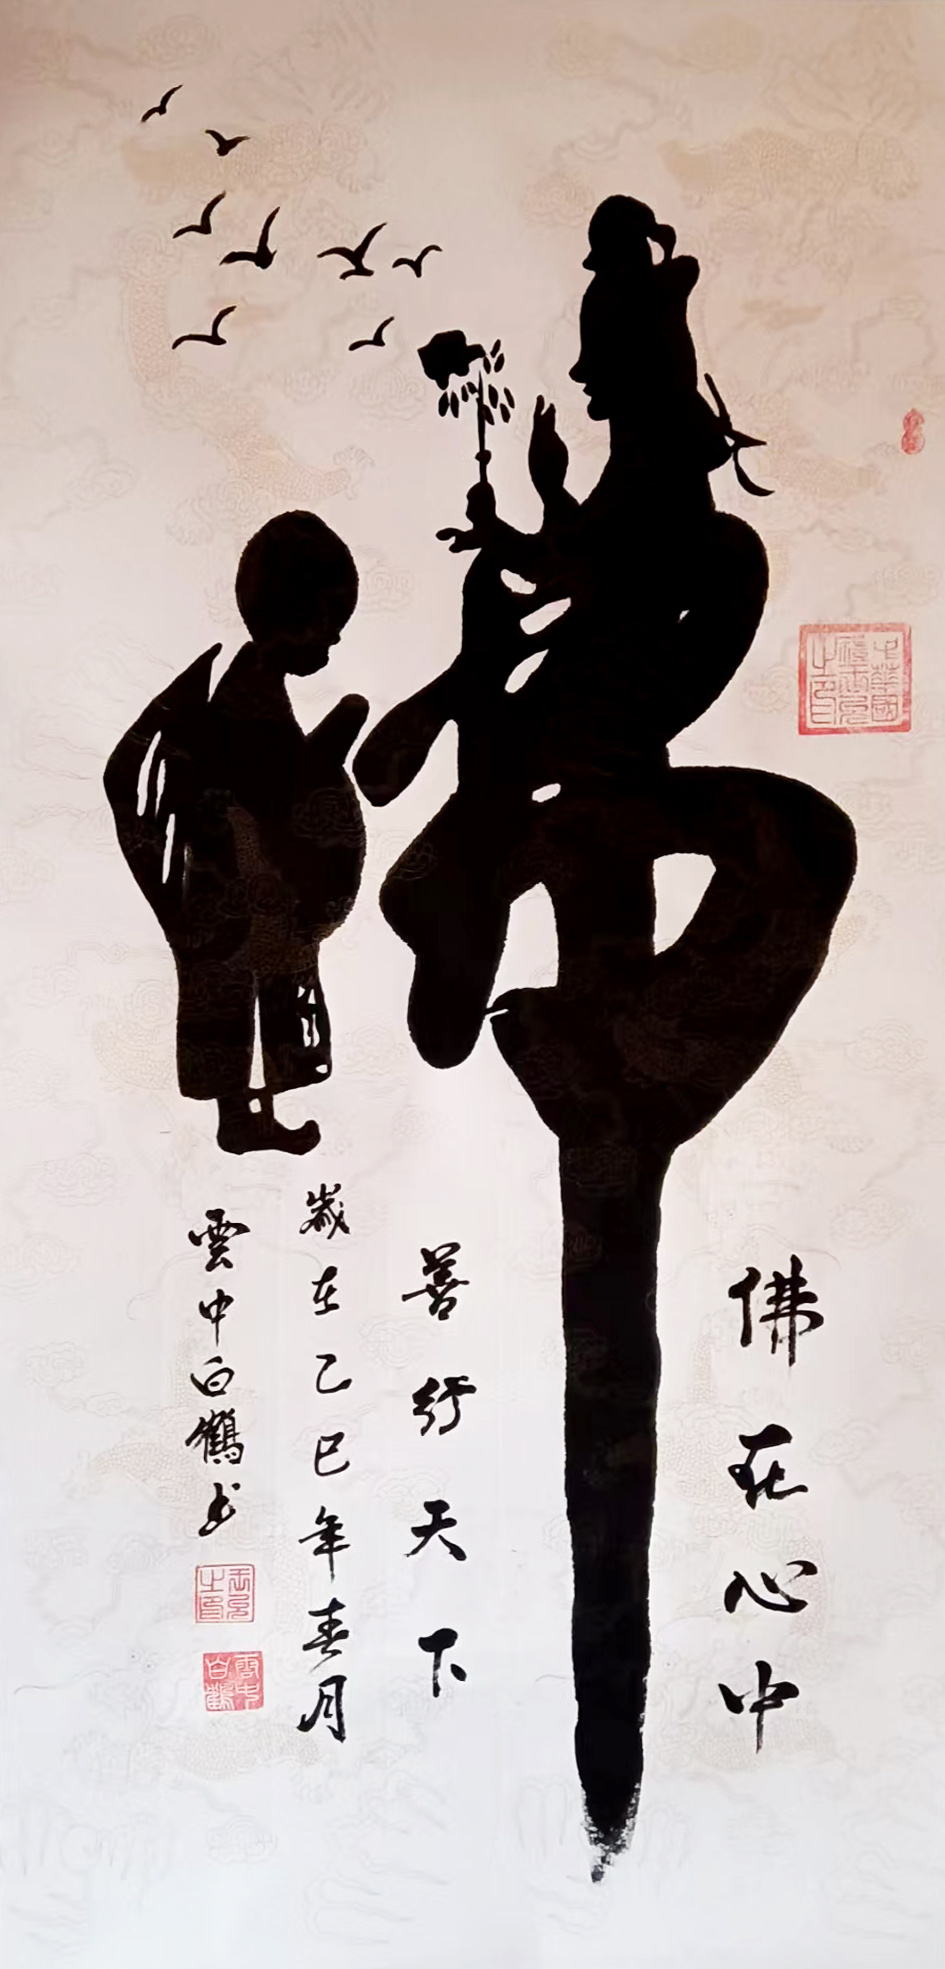 佛
佛在心中
善行天下
歲在乙巳年春月
雲中白鶴书
雲中白鶴